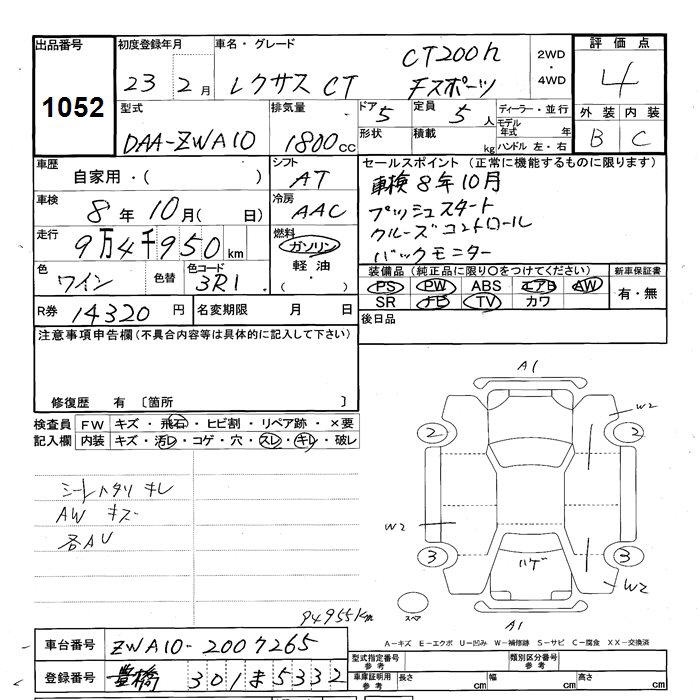 出品番号 初度登録年月 車名・グレード 評価点
1052 23 2月 レクサス CT CT200h Fスポーツ 2WD・4WD 4
型式 排気量 ドア 5 定員 5人 ディーラー・並行 外装 内装
DAA-ZWA10 1800cc 形状 積載 kg モデル年式 年 ハンドル 左・右 B C
車歴 自家用・( ) シフト AT セールスポイント (正常に機能するものに限ります)
車検 8年10月( 日) 冷房 AAC 車検8年10月
走行 9万4千950km 燃料 ガソリン プッシュスタート
軽油・( ) クルーズコントロール
バックモニター
色 ワイン 色替 色コード 3R1 装備品 (純正品に限り○をつけてください) 新車保証書
PS PW ABS エアB AW 有・無
SR ナビ TV カワ
R券 14320円 名変期限 月 日 後日品
注意事項申告欄 (不具合内容等は具体的に記入して下さい)
修復歴 有 〔箇所 〕
検査員 FW キズ・飛石・ヒビ割・リペア跡・×要
記入欄 内装 キズ・汚レ・コゲ・穴・スレ・キレ・破レ
シートヘタリ キレ
AW キズ
各AU
A1
W2
2 2
W2
3 3
ハゲ
W2
スペア
A1
94955Km
A-キズ E-エクボ U-凹み W-補修跡 S-サビ C-腐食 XX-交換済
車台番号 ZWA10-2007265
型式指定番号 参考 類別区分番号 参考
登録番号 豊橋 301 ま 5332 車庫証明用 参考 長さ cm 幅 cm 高さ cm